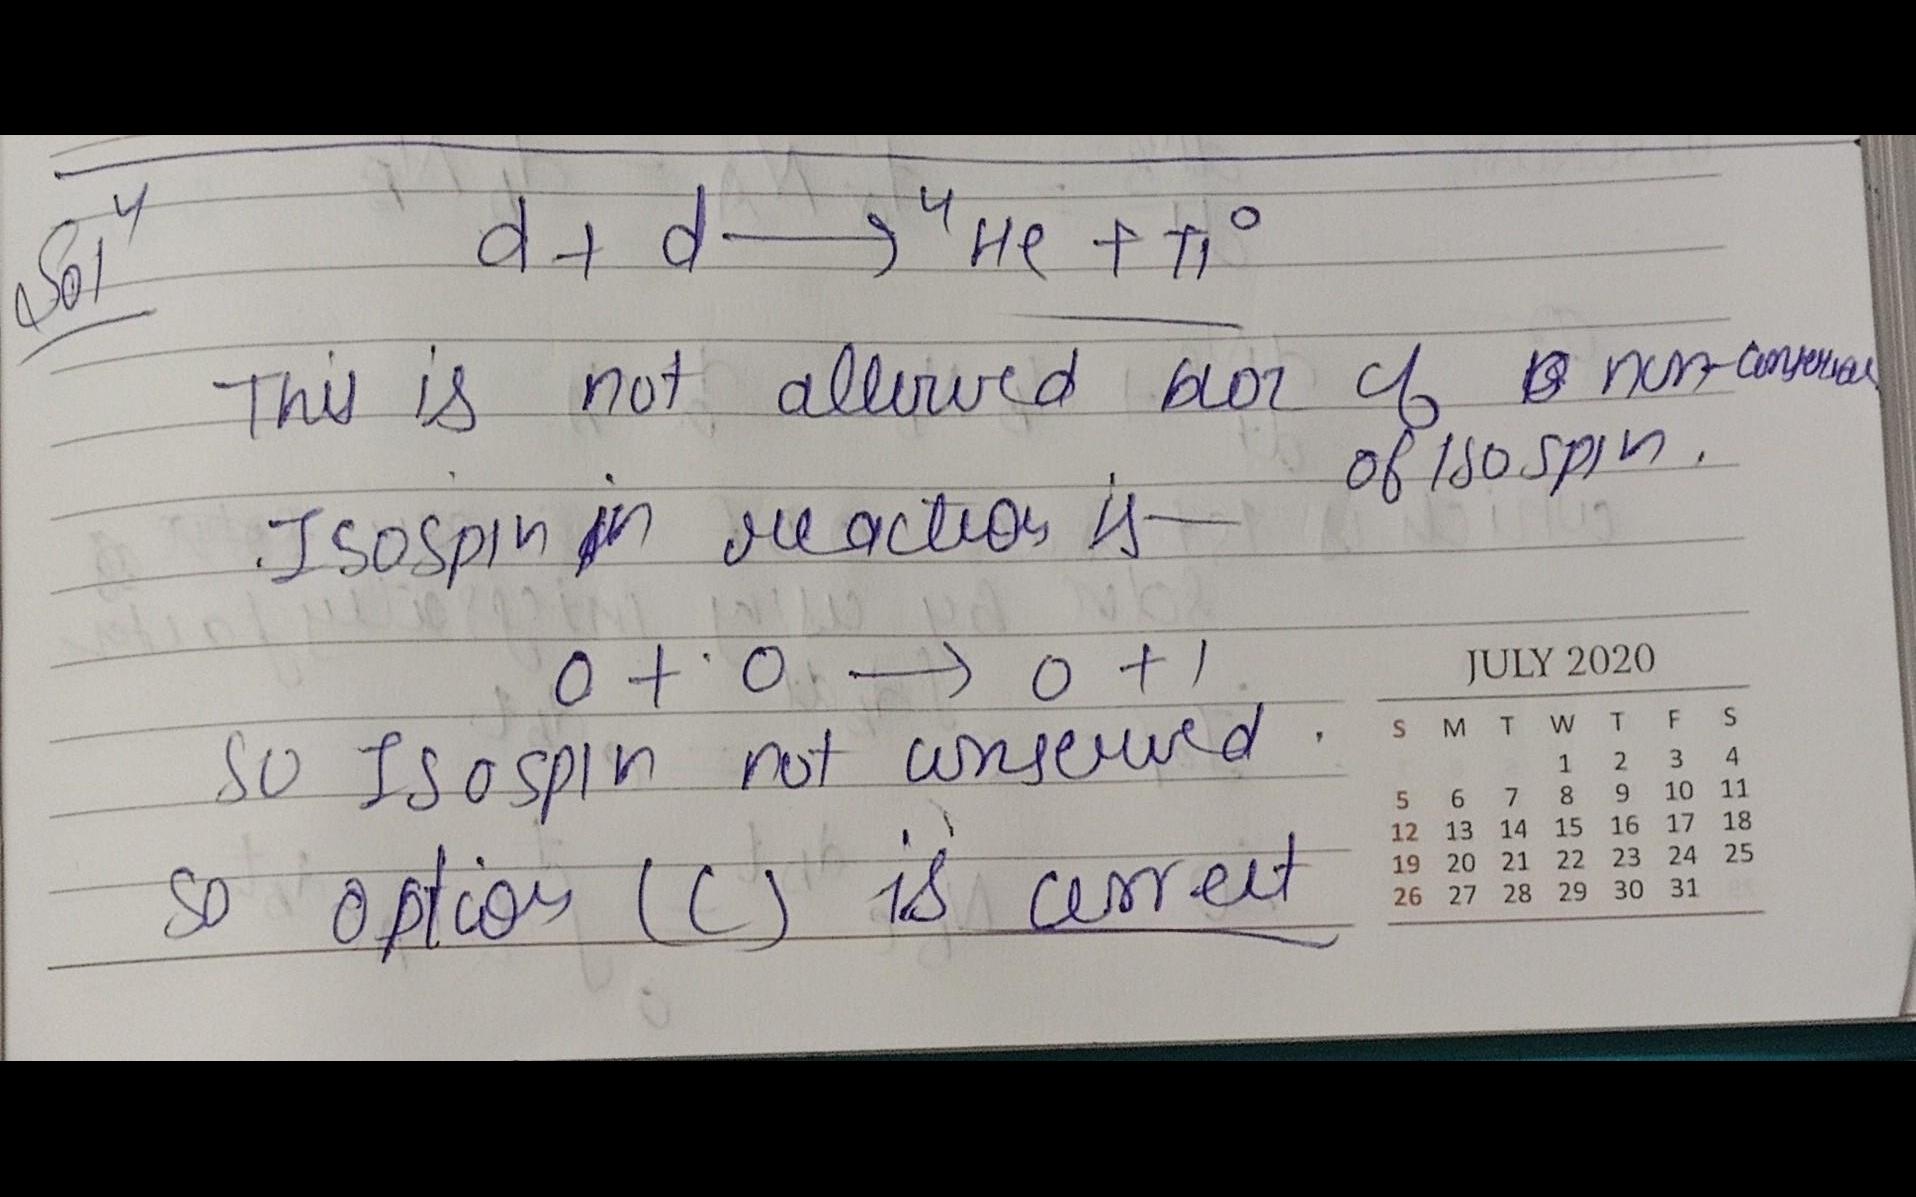 Sol 4
d + d → ⁴He + π⁰
This is not allowed of non-
of Isospin.
Isospin in reaction is —
0 + 0 → 0 + 1
So Isospin not conserved.
So option (C) is correct
JULY 2020
S M T W T F S
1 2 3 4
5 6 7 8 9 10 11
12 13 14 15 16 17 18
19 20 21 22 23 24 25
26 27 28 29 30 31